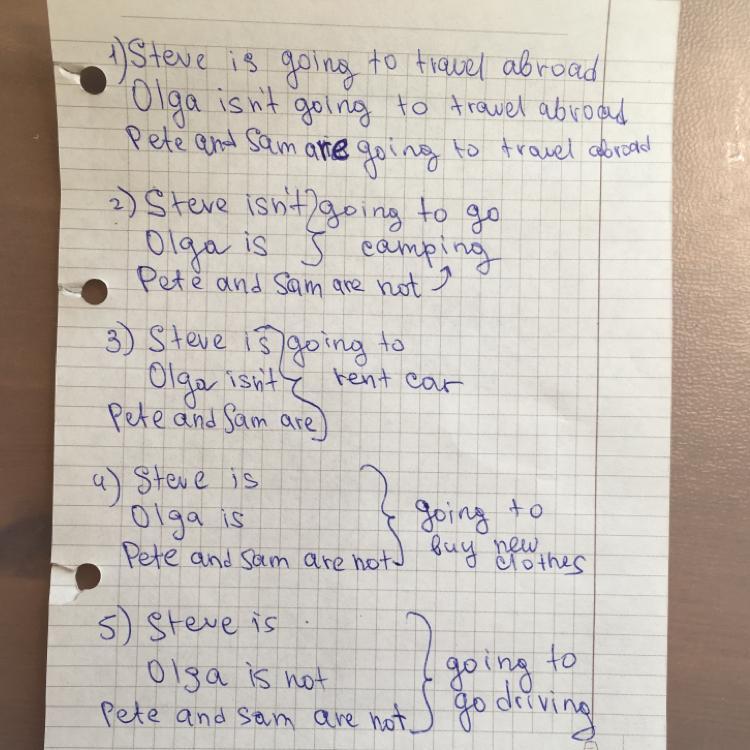 1) Steve is going to travel abroad
Olga isn't going to travel abroad
Pete and Sam are going to travel abroad
2) Steve isn't going to go
Olga is camping
Pete and Sam are not
3) Steve is going to
Olga isn't rent car
Pete and Sam are
4) Steve is
Olga is going to
Pete and Sam are not buy new clothes
5) Steve is
Olga is not going to
Pete and Sam are not go driving